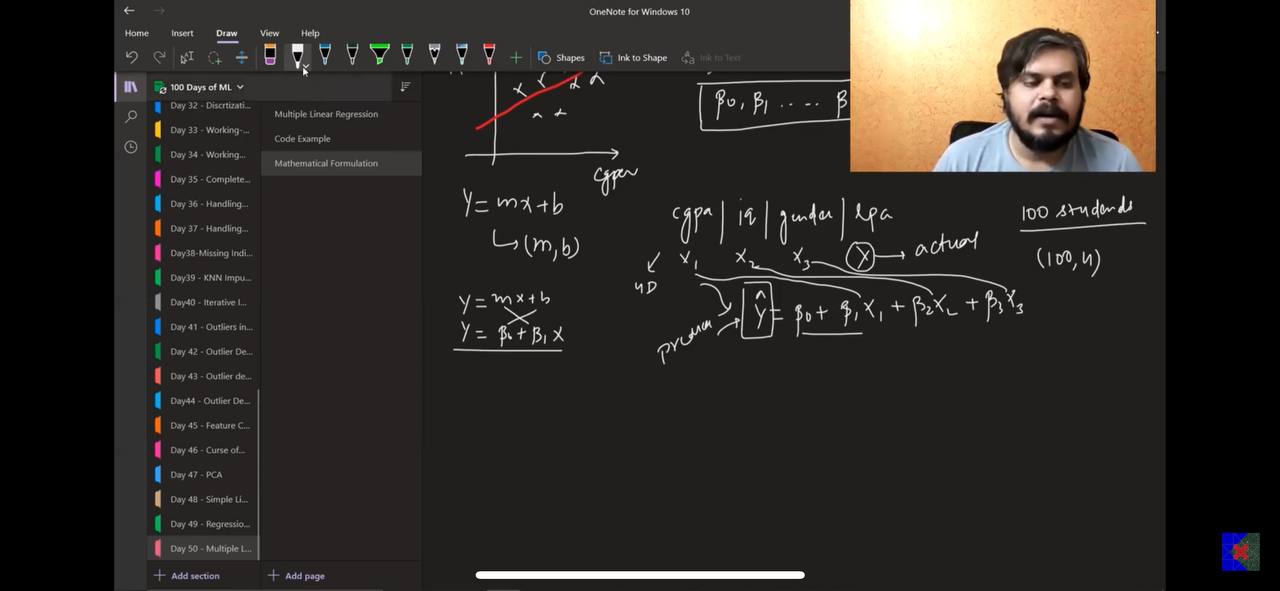 OneNote for Windows 10
Home Insert Draw View Help
Shapes Ink to Shape Ink to Text
100 Days of ML
Day 32 - Discrtizati...
Day 33 - Working-...
Day 34 - Working...
Day 35 - Complete...
Day 36 - Handling...
Day 37 - Handling...
Day38-Missing Indi...
Day39 - KNN Impu...
Day40 - Iterative I...
Day 41 - Outliers in...
Day 42 - Outlier De...
Day 43 - Outlier de...
Day44 - Outlier De...
Day 45 - Feature C...
Day 46 - Curse of...
Day 47 - PCA
Day 48 - Simple Li...
Day 49 - Regressio...
Day 50 - Multiple L...
Add section
Multiple Linear Regression
Code Example
Mathematical Formulation
Add page
β0, β1 ..... β
cgpa
Y = mx+b
(m,b)
Y = mx+b
Y = β0 + β1 X
cgpa | iq | gender | lpa
X1 X2 X3 Y → actual
4D
Ŷ = β0 + β1X1 + β2X2 + β3X3
100 students
(100,4)